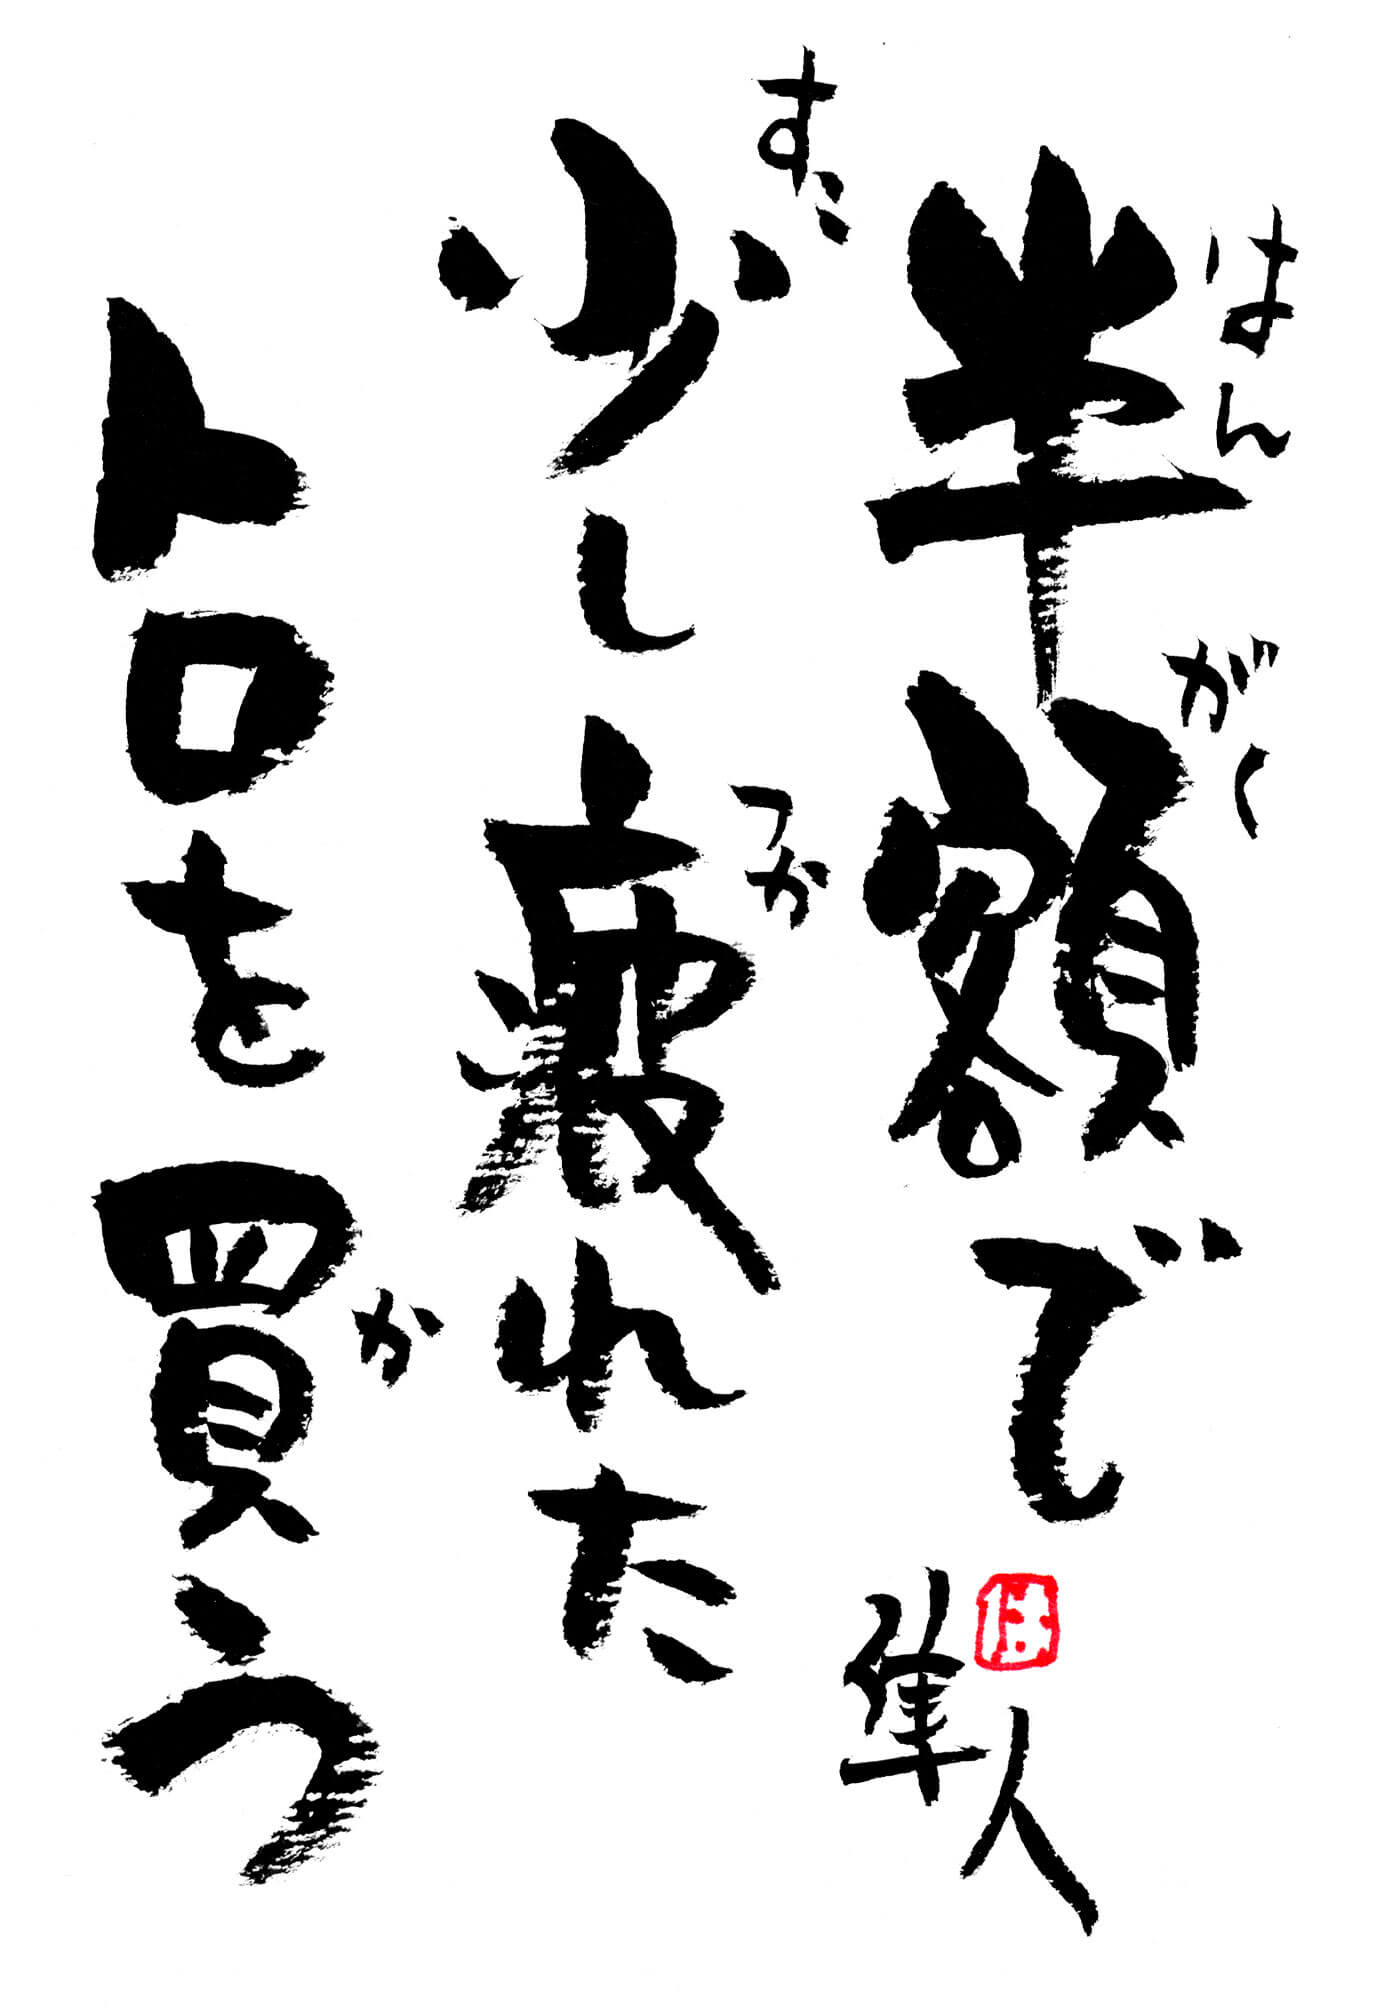 半額で
はんがく
少し疲れた
すこ
つか
トロを買う
か
隼人
は